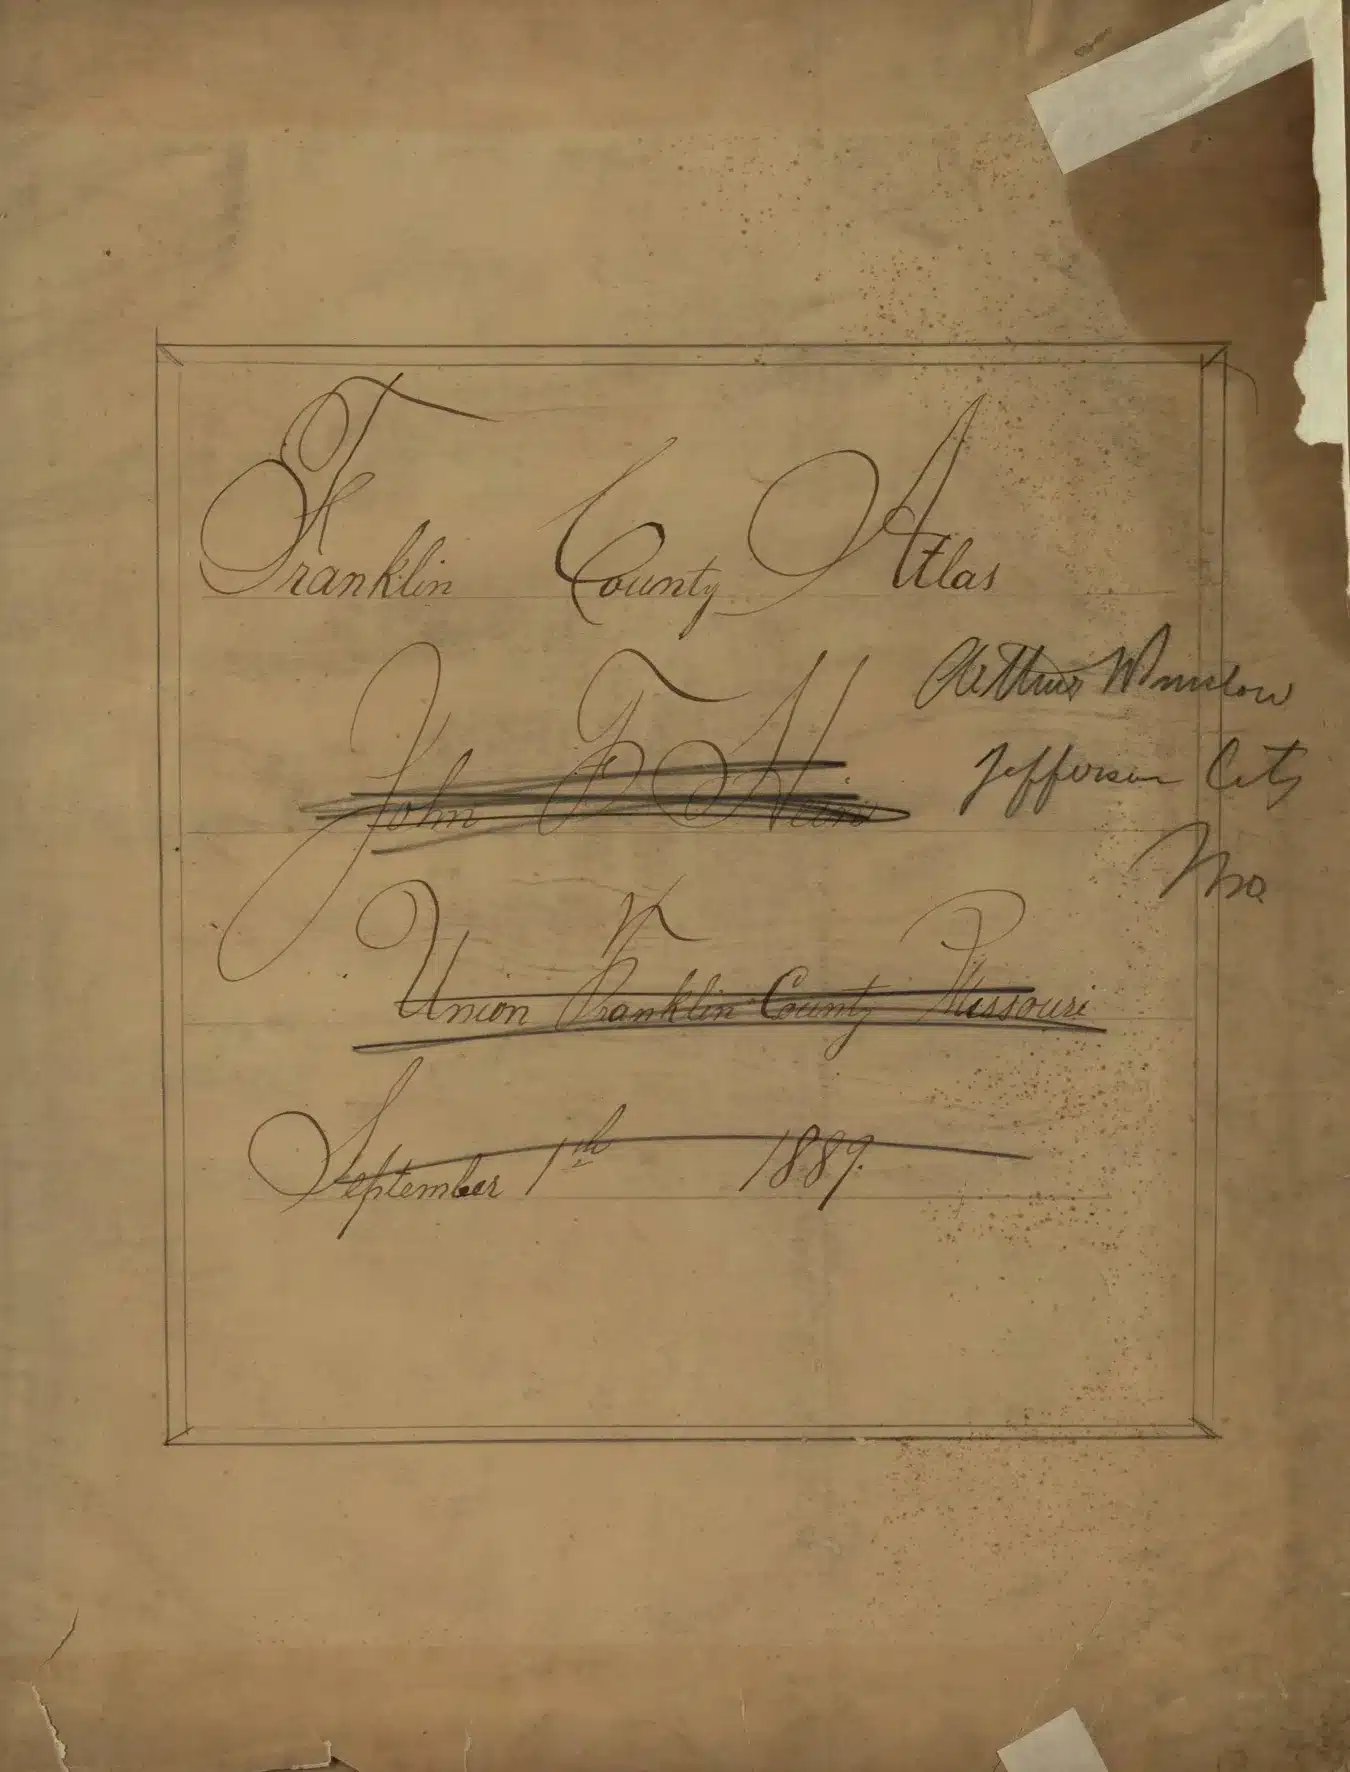 Franklin County Atlas
Arthur Winslow
John F. Hein
Jefferson City
Mo.
Union Franklin County Missouri
September 1th 1889.